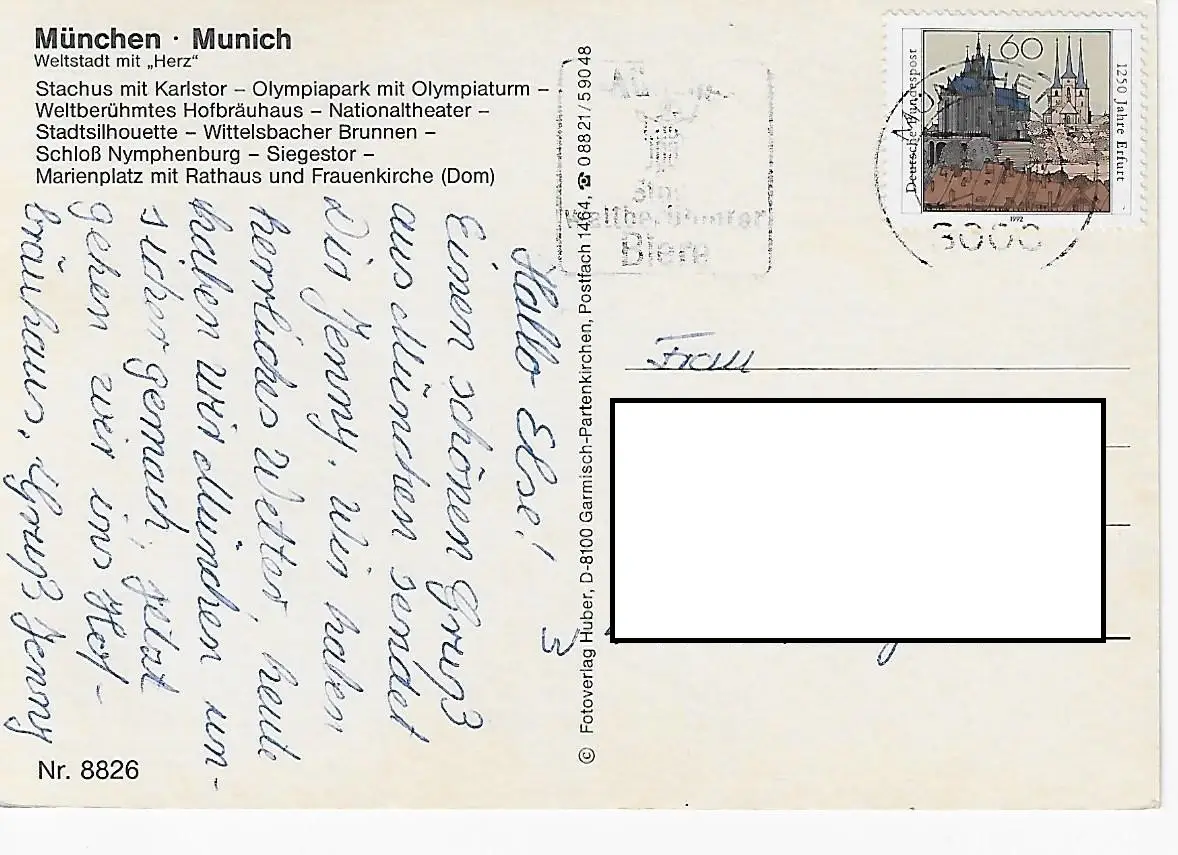 München · Munich
Weltstadt mit „Herz“
Stachus mit Karlstor – Olympiapark mit Olympiaturm –
Weltberühmtes Hofbräuhaus – Nationaltheater –
Stadtsilhouette – Wittelsbacher Brunnen –
Schloß Nymphenburg – Siegestor –
Marienplatz mit Rathaus und Frauenkirche (Dom)
Hallo Else!
Einen schönen Gruß
aus München sendet
Dir Jenny. Wir haben
herrliches Wetter, heute
haben wir München un-
sicher gemach, jetzt
gehen wir ins Hof-
bräuhaus. Gruß Jenny
Nr. 8826
© Fotoverlag Huber, D-8100 Garmisch-Partenkirchen, Postfach 1464, ☎ 08821/59048
weltberühmter
Biere
Deutsche Bundespost
60
1250 Jahre Erfurt
1992
8000
Frau
3